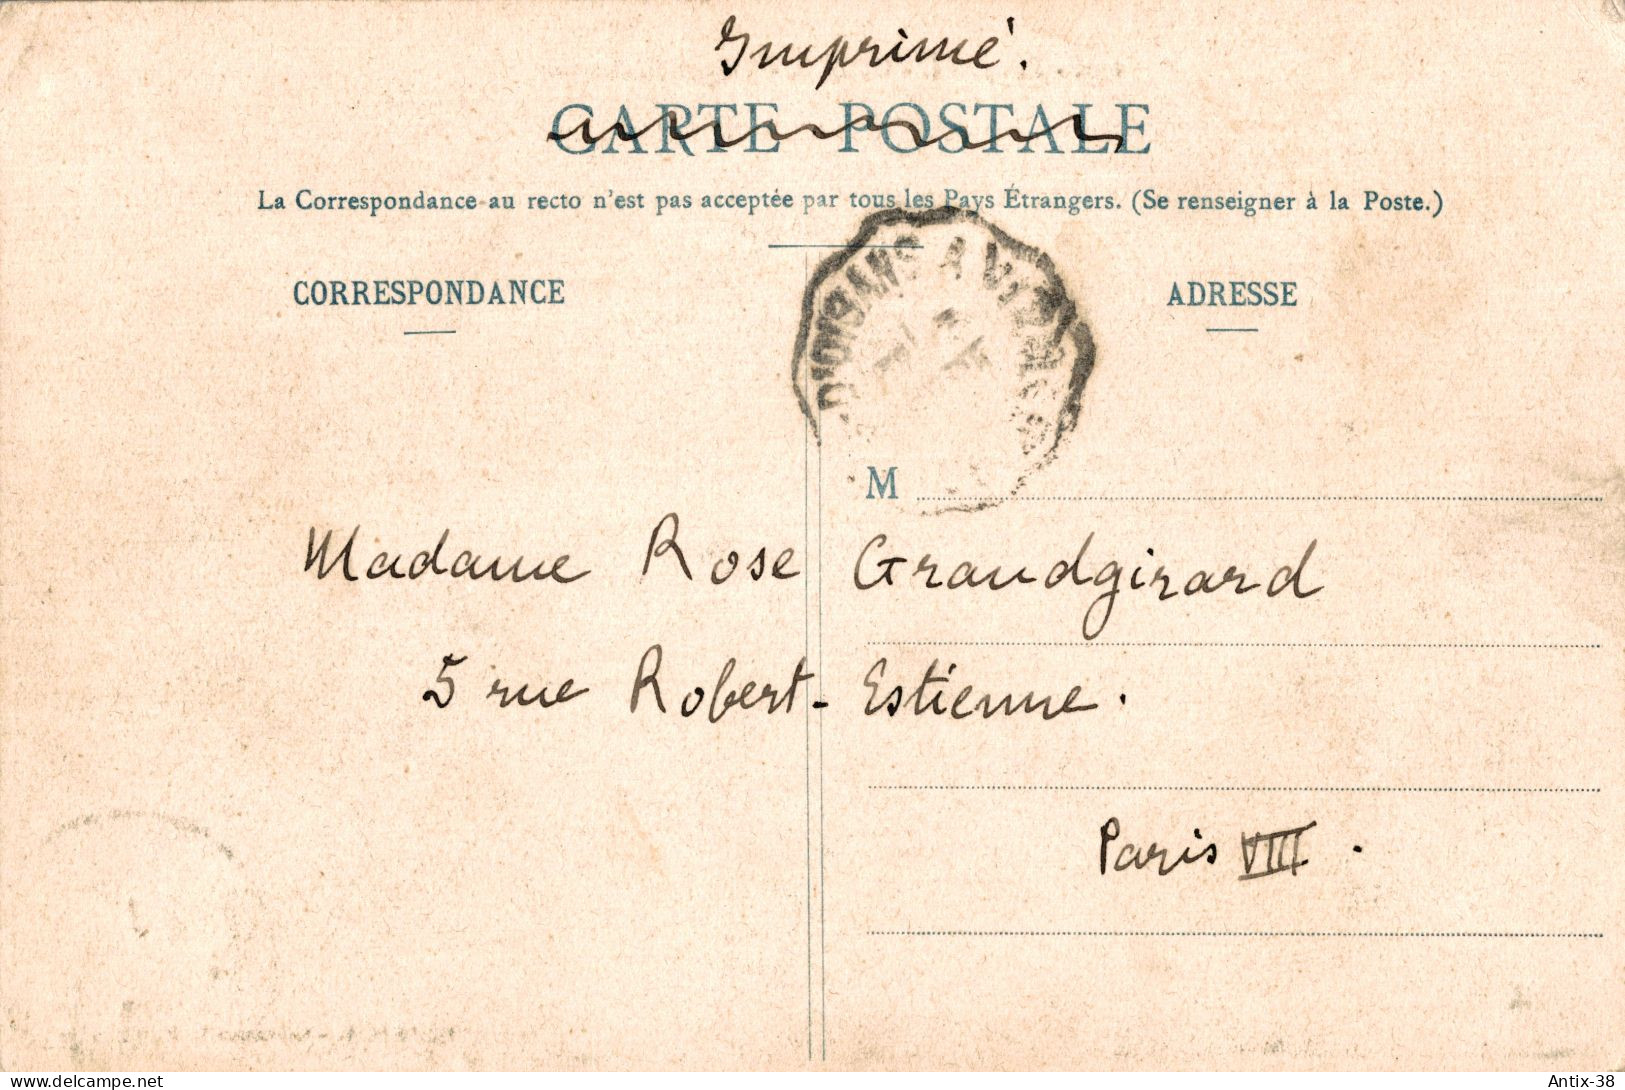 Imprimé.
CARTE POSTALE
La Correspondance au recto n'est pas acceptée par tous les Pays Étrangers. (Se renseigner à la Poste.)
CORRESPONDANCE
ADRESSE
M
Madame Rose Grandgirard
5 rue Robert-Estienne.
Paris VIII.
delcampe.net
Antix-38